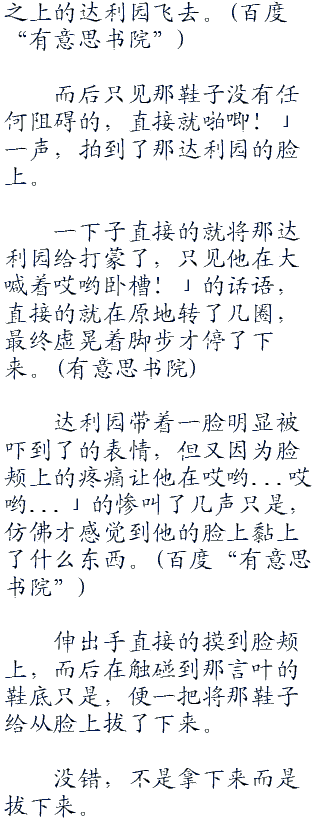 之上的达利园飞去。(百度
“有意思书院”)
而后只见那鞋子没有任
何阻碍的，直接就啪唧！」
一声，拍到了那达利园的脸
上。
一下子直接的就将那达
利园给打蒙了，只见他在大
喊着哎哟卧槽！」的话语，
直接的就在原地转了几圈，
最终虚晃着脚步才停了下
来。(有意思书院)
达利园带着一脸明显被
吓到了的表情，但又因为脸
颊上的疼痛让他在哎哟...哎
哟...」的惨叫了几声只是，
仿佛才感觉到他的脸上黏上
了什么东西。(百度“有意思
书院”)
伸出手直接的摸到脸颊
上，而后在触碰到那言叶的
鞋底只是，便一把将那鞋子
给从脸上拔了下来。
没错，不是拿下来而是
拔下来。